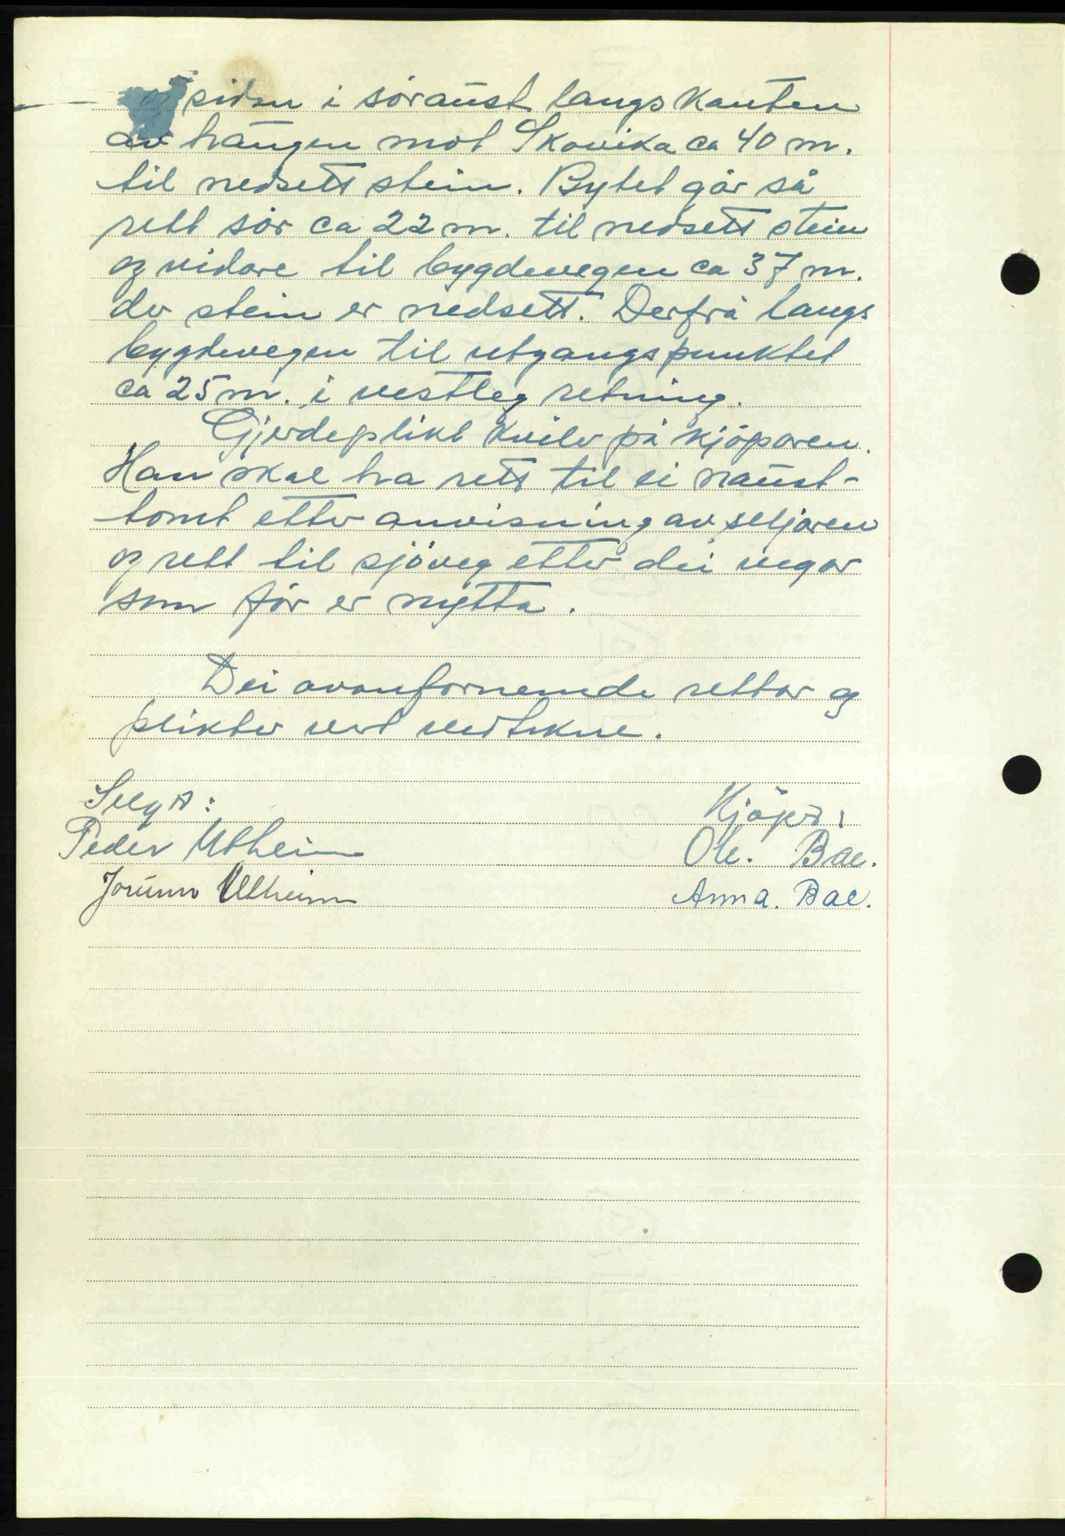 og sidan i söraust langs kanten
av haugen mot Skavika ca 40 m.
til nedsett stein. Bytet går så
rett sör ca 22 m. til nedsett stein
og vidare til bygdevegen ca 37 m.
der stein er nedsett. Derfrå langs
bygdevegen til utgangspunktet
ca 25 m. i vestleg retning.
Gjerdeplikt kviler på kjöparen.
Han skal ha rett til ei naust-
tomt etter anvisning av seljaren
og rett til sjöveg etter dei vegar
som för er nytta.
Dei ovanfornemde rettar og
plikter vert vedtekne.
Selger: Kjöper:
Peder Utheim Ole. Bae.
Jorunn Utheim Anna. Bae.